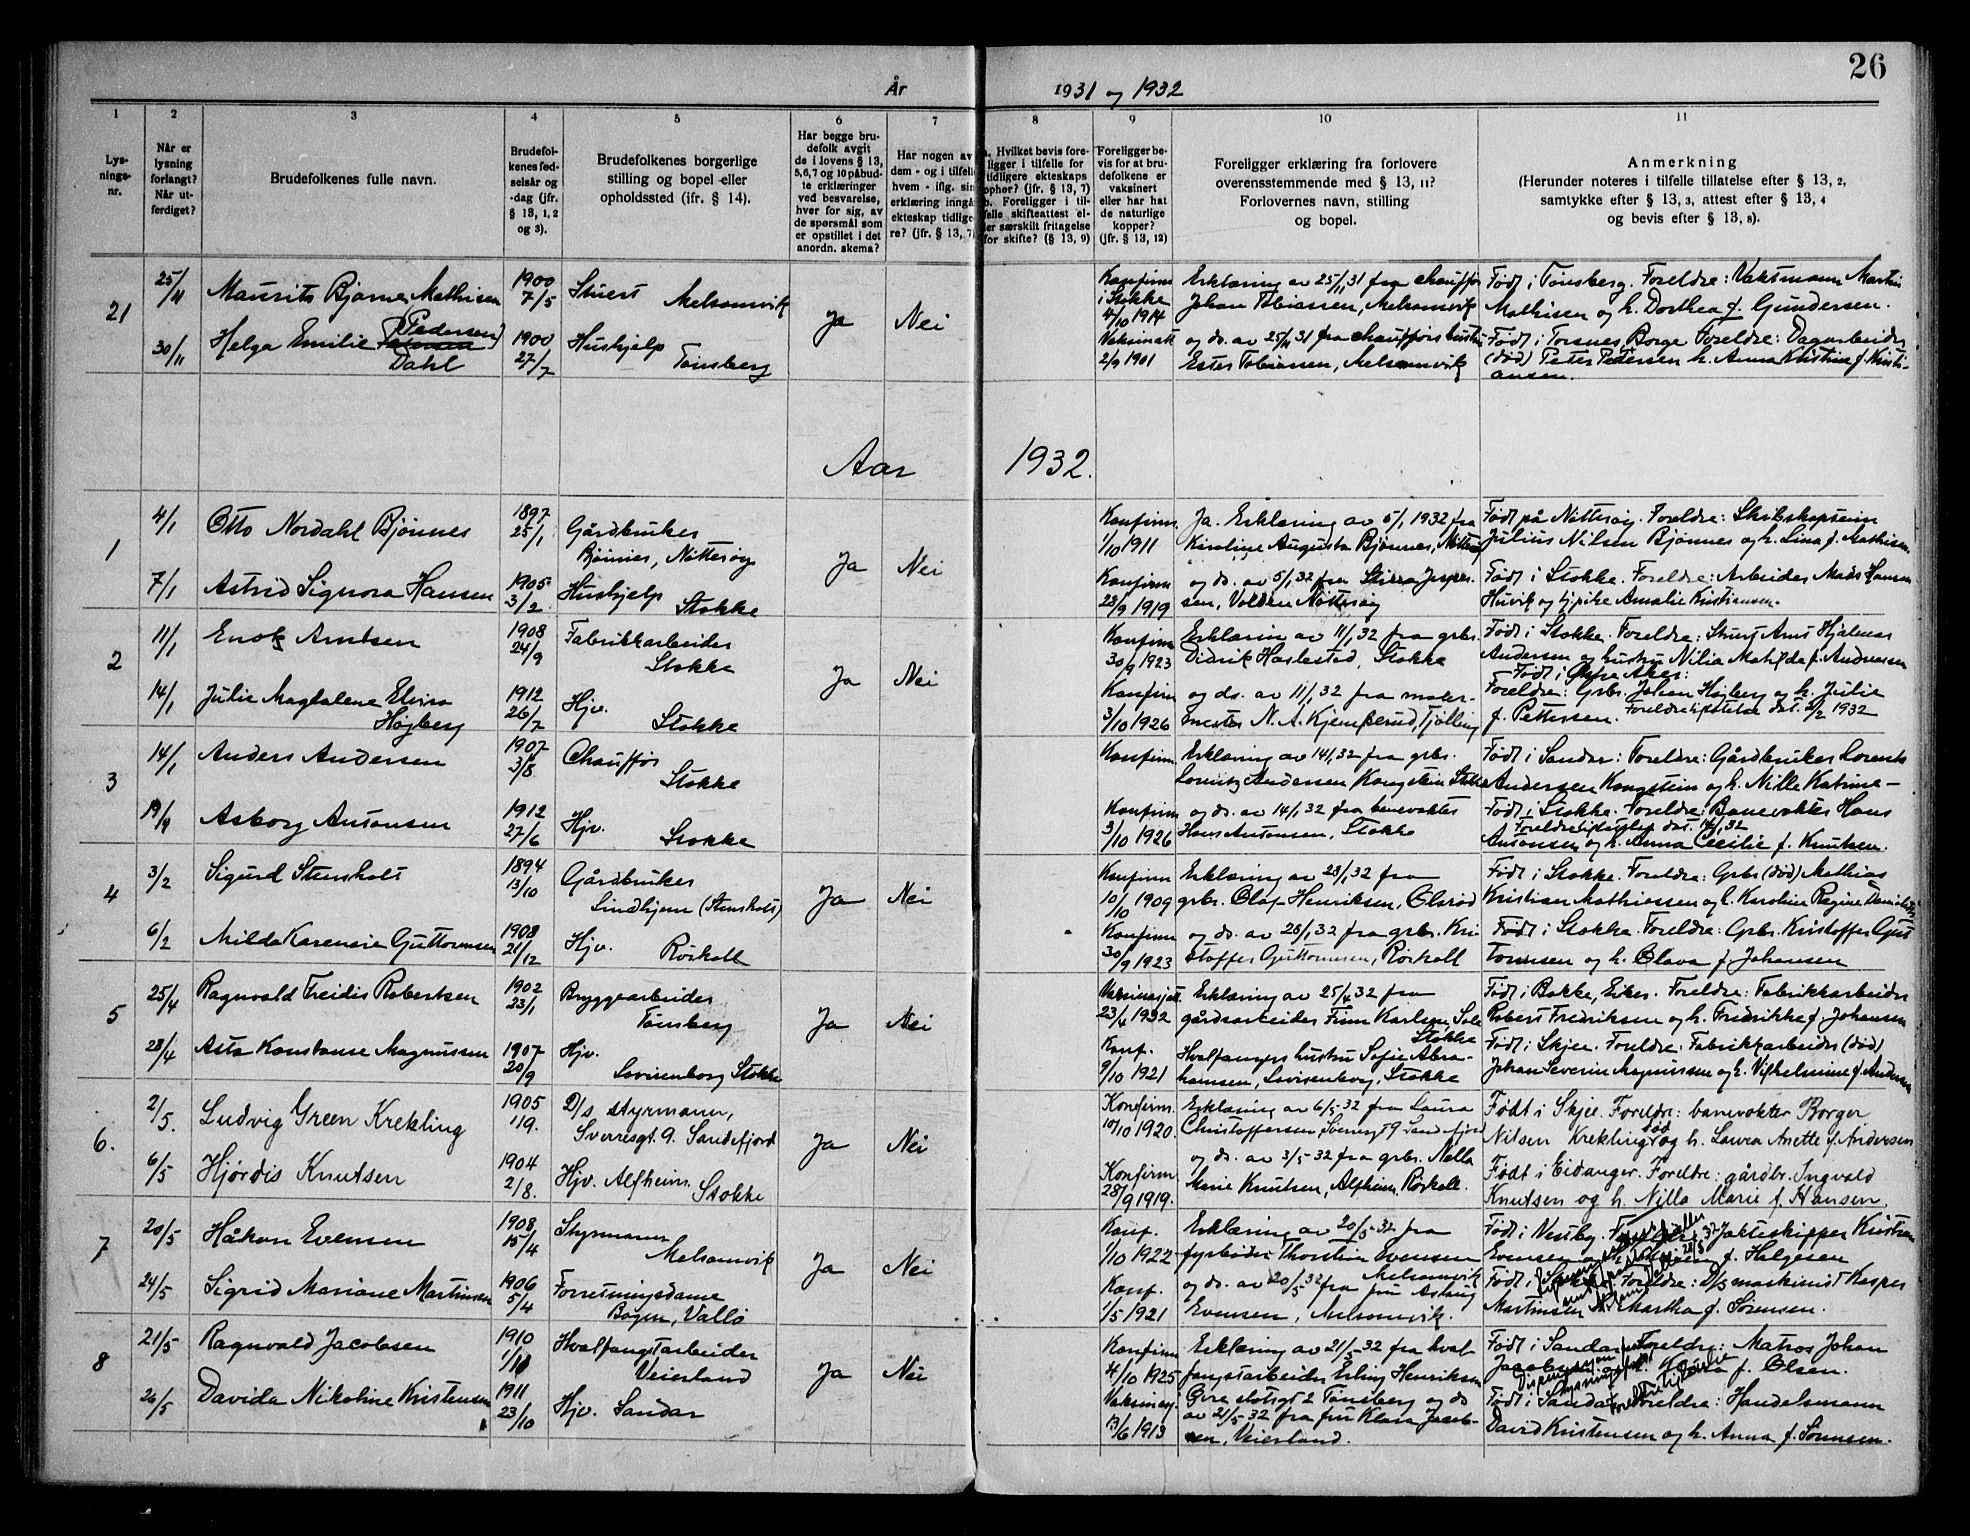 26
År 1931 og 1932
1 2 3 4 5 6 7 8 9 10 11
Lys-
nings-
nr.
Når er
lysning
forlangt?
Når ut-
ferdiget?
Brudefolkenes fulle navn.
Brudefol-
kenes fød-
selsår og
-dag (jfr.
§ 13, 1, 2
og 3).
Brudefolkenes borgerlige
stilling og bopel eller
opholdssted (jfr. § 14).
Har begge bru-
defolk avgit
de i lovens § 13,
5, 6, 7 og 10 påbud-
te erklæringer
ved besvarelse,
hver for sig, av
de spørsmål som
er opstillet i det
anordn. skema?
Har nogen av
dem - og i tilfelle
hvem - iflg. sin
erklæring inngå
ekteskap tidlige-
re? (jfr. § 13, 7)
a. Hvilket bevis fore-
ligger i tilfelle for
tidligere ekteskaps
ophør? (jfr. § 13, 7)
b. Foreligger i til-
felle skifteattest el-
ler særskilt fritagelse
for skifte? (§ 13, 9)
Foreligger be-
vis for at bru-
defolkene er
vaksinert
eller har hat
de naturlige
kopper?
(jfr. § 13, 12)
Foreligger erklæring fra forlovere
overensstemmende med § 13, 11?
Forlovernes navn, stilling
og bopel.
Anmerkning
(Herunder noteres i tilfelle tillatelse efter § 13, 2,
samtykke efter § 13, 3, attest efter § 13, 4
og bevis efter § 13, 8).
21
25/11 Maurits Bjarne Mathisen 1900 7/5 Stuert Melsomvik
Ja Nei
Konfirm. i Stokke 4/10 1914
Erklæring av 25/11 31 fra chauffør
Johan Tobiassen, Melsomvik
Født i Tønsberg. Foreldre: Vaktmann Martin
Mathisen og h. Dorthea f. Gundersen.
30/11 Helga Emilie (Pedersen)
Dahl 1900 27/7 Hushjelp Tønsberg
Vaksinatt 2/9 1901
og ds. av 25/11 31 fra chaufførs hustru
Ester Tobiassen, Melsomvik
Født i Torsnes Borge Foreldre: Dagarbeider
(død) Peter Pedersen h. Anna Kristine f. Kristi-
ansen.
Aar 1932.
1
4/1 Otto Nordahl Bjønnes 1897 25/1 Gårdbruker
Bjønnes, Nøtterøy
Ja Nei
Konfirm. 1/10 1911
Ja. Erklæring av 5/1 1932 fra
Karoline Augusta Bjønnes, Nøtterøy
Født på Nøtterøy. Foreldre: Skibskaptein
Julius Nilsen Bjønnes og h. Lina f. Mathisen.
7/1 Astrid Signora Hansen 1905 3/2 Hushjelp
Stokke
Konfirm 28/9 1919
og ds. av 5/1 32 fra Jesper-
sen, Volden Nøtterøy
Født i Stokke. Foreldre: Arbeider Mads Hansen
Huvik og pike Amalie Kristiansen.
2
11/1 Enok Arntsen 1908 24/9 Fabrikkarbeider
Stokke
Ja Nei
Konfirm 30/9 1923
Erklæring av 11/1 32 fra grbr.
Didrik Haslestad, Stokke
Født i Stokke. Foreldre: Stuert Arnt Hjalmar
Andersen og hustru Nilia Matilda f. Andreassen
14/1 Julie Magdalene Elvira
Høgberg 1912 26/7 Hjv. Stokke
Konfirm 3/10 1926
og ds. av 11/1 32 fra maler-
mester N. A. Kjempesrud, Tjølling
Født i Østre Aker.
Foreldre: Grbr. Johan Høgberg og h. Julie
f. Pettersen.
3
14/1 Anders Andersen 1907 3/8 Chauffør
Stokke
Konfirm
Erklæring av 14/1 32 fra grbr.
Lorentz Andersen Kongstein Stokke
Født i Sandar: Foreldre: Gårdbruker Lorents
Andersen Kongstein og h. Nille Katrine -
19/9 Asborg Antonsen 1912 27/6 Hjv.
Stokke
Konfirm 3/10 1926
og ds. av 14/1 32 fra banevokter
Hans Antonsen, Stokke
Født i Stokke. Foreldre: Banevokter Hans
Antonsen og h. Anna Cecilie f. Knutsen.
4
3/2 Sigurd Stensholt 1894 13/10 Gårdbruker
Lindhjem (Stensholt)
Ja Nei
Konfirm 10/10 1909
Erklæring av 28/1 32 fra
grbr. Olaf Henriksen, Olsrød
Født i Stokke. Foreldre: Grbr (død) Mathias
Kristian Mathiassen og h. Karoline Regine
6/2 Milda Karensia Guttormsen 1908 21/12 Hjv. Rørkoll
Konfirm 30/9 1923
og ds. av 28/1 32 fra grbr. Kri
stoffer Guttormsen, Rørkoll
Født i Stokke. Foreldre: Grbr. Kristoffer Gut
tormsen og h. Olava f. Johansen
5
25/4 Ragnvald Freidis Robertsen 1902 23/1 Bryggearbeider
Tønsberg
Ja Nei
23/4 1932
Erklæring av 25/4 32 fra
gårdsarbeider Finn Karlsen, Sole
Stokke
Født i Bakke, Eiker. Foreldre: Fabrikkarbeider
Robert Fredriksen og h. Fredrikke f. Johansen
28/4 Asta Konstanse Magnussen 1907 20/9 Hjv.
Lovisenborg Stokke
Konf. 9/10 1921
Hvalfangers hustru Sofie Abra-
hamsen, Lovisenborg, Stokke
Født i Skjee. Foreldre: Fabrikkarbeider (død)
Johan Severin Magnussen og h. Vilhelmine f. Andersen
6.
2/5. Ludvig Green Krekling 1905 1/9. D/s styrmann,
Sverresgt. 9. Sandefjord
Ja Nei
Konfirm. 10/10 1920.
Erklæring av 6/5-32 fra Laura
Christoffersen, 9 Sandefjord
Født i Skjee. Foreldre: banevokter Borger
Nilsen Krekling død og h. Laura Anette f. Andersen
6/5 Hjørdis Knutsen 1904 2/8. Hjv. Alfheim
Stokke
Konfirm. 28/9 1919.
og ds. av 3/5-32 fra grbr. Nella
Marie Knutsen, Alfheim, Rørkoll.
Født i Eidanger. Foreldre: gårdbr. Ingvald
Knutsen og h. Nilla Marie f. Hansen.
7
20/5 Håkon Evensen 1908 15/4 Styrmann
Melsomvik
Ja Nei
Konf. 1/10 1922
Erklæring av 20/5-32 fra
fyrbøter Thorstein Evensen
Melsomvik
Født i Vestby. Foreldre: Jakteskipper Kristian
Evensen f. Helgesen
24/5 Sigrid Mariane Martinsen 1906 5/4 Forretningsdame
Bogen, Vallø
Konf. 1/5 1921
og ds. av 20/5 32 fra fru Aslaug
Evensen, Melsomvik.
Født i Foreldre: D/s maskinist Kasper
Martinsen Martha f. Sørensen.
8
21/5 Ragnvald Jacobsen 1910 1/11 Hvalfangstarbeider
Veierland
Ja Nei
Konfirm 4/10 1925
Erklæring av 21/5-32 fra hval
fangstarbeider Erling Henriksen
Født i Sandar. Foreldre: Matros Johan
Jacobsen f. Olsen.
26/5 Davida Nikoline Kristensen 1911 23/10 Hjv. Sandar
13/6 1913
Øvre slotsgt 2 Tønsberg og ds
av 21/5-32 fra fru Klara Jacob-
sen, Veierland.
Født i Sandar Foreldre: Handelsmann
David Kristensen og h. Anna f. Sørensen.